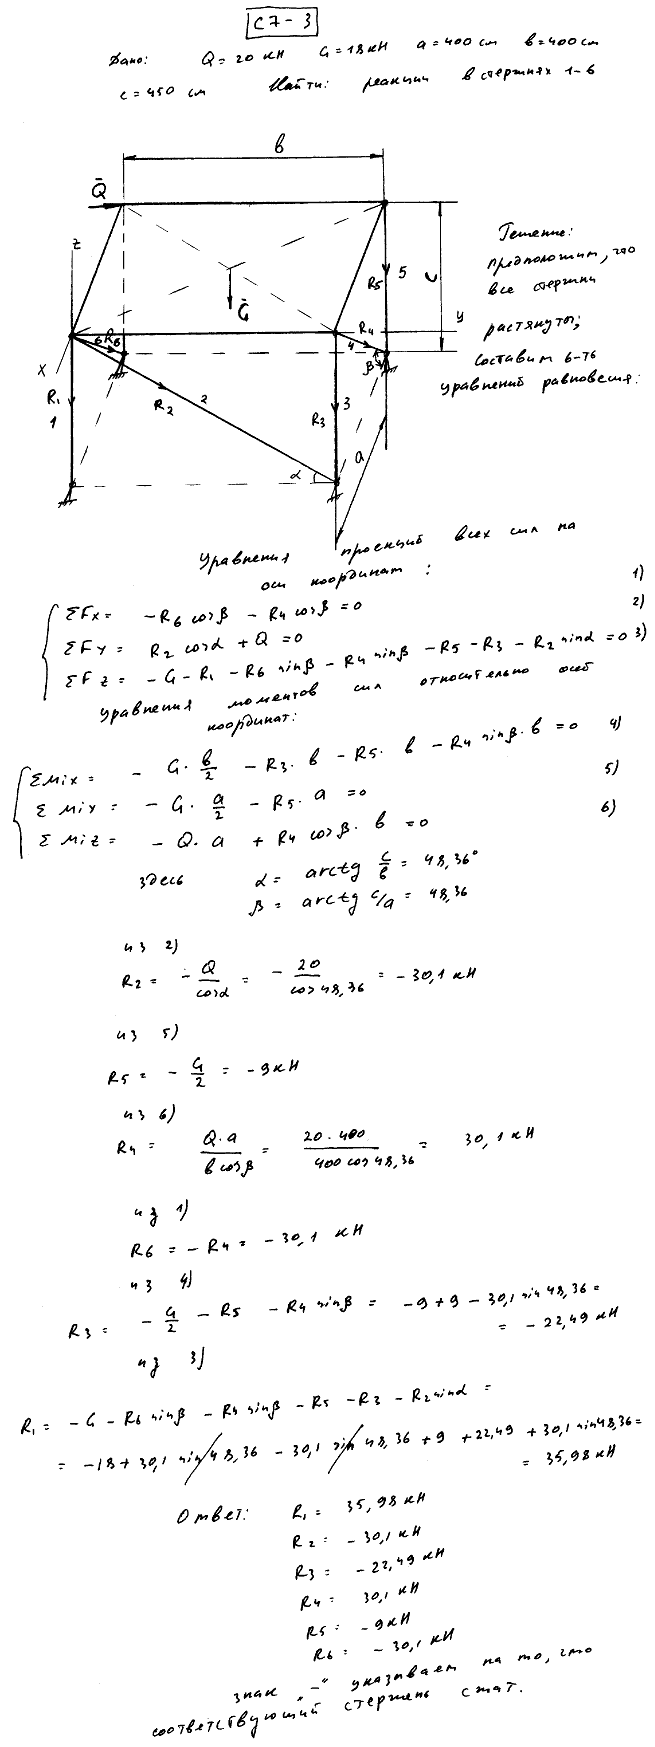 С7-3
Дано: Q = 20 кН G = 18 кН a = 400 см в = 400 см
c = 450 см Найти: реакции в стержнях 1-6
в
Q̄
z
Решение:
предположим, что
все стержни
растянуты;
составим 6-ть
уравнений равновесия:
R5 5 c
Ḡ
y
R4
4
6 R6
β
x
R1
1
R2 2
R3 3
a
α
Уравнения проекций всех сил на
оси координат:
ΣFx = -R6 cosβ - R4 cosβ = 0 1)
ΣFy = R2 cosα + Q = 0 2)
ΣFz = -G - R1 - R6 sinβ - R4 sinβ - R5 - R3 - R2 sinα = 0 3)
уравнения моментов сил относительно осей
координат:
ΣMix = - G · в/2 - R3 · в - R5 · в - R4 sinβ · в = 0 4)
ΣMiy = - G · a/2 - R5 · a = 0 5)
ΣMiz = - Q · a + R4 cosβ · в = 0 6)
здесь α = arctg c/в = 48,36°
β = arctg c/a = 48,36
из 2)
R2 = - Q/cosα = - 20/cos48,36 = -30,1 кН
из 5)
R5 = - G/2 = -9кН
из 6)
R4 = Q·a/в cosβ = 20·400/400 cos48,36 = 30,1 кН
из 1)
R6 = -R4 = -30,1 кН
из 4)
R3 = - G/2 - R5 - R4 sinβ = -9 + 9 - 30,1 sin48,36 =
= -22,49 кН
из 3)
R1 = -G - R6 sinβ - R4 sinβ - R5 - R3 - R2 sinα =
= -18 + 30,1 sin48,36 - 30,1 sin48,36 + 9 + 22,49 + 30,1 sin48,36 =
= 35,98 кН
Ответ: R1 = 35,98 кН
R2 = -30,1 кН
R3 = -22,49 кН
R4 = 30,1 кН
R5 = -9кН
R6 = -30,1 кН
знак „-“ указывает на то, что
соответствующий стержень сжат.